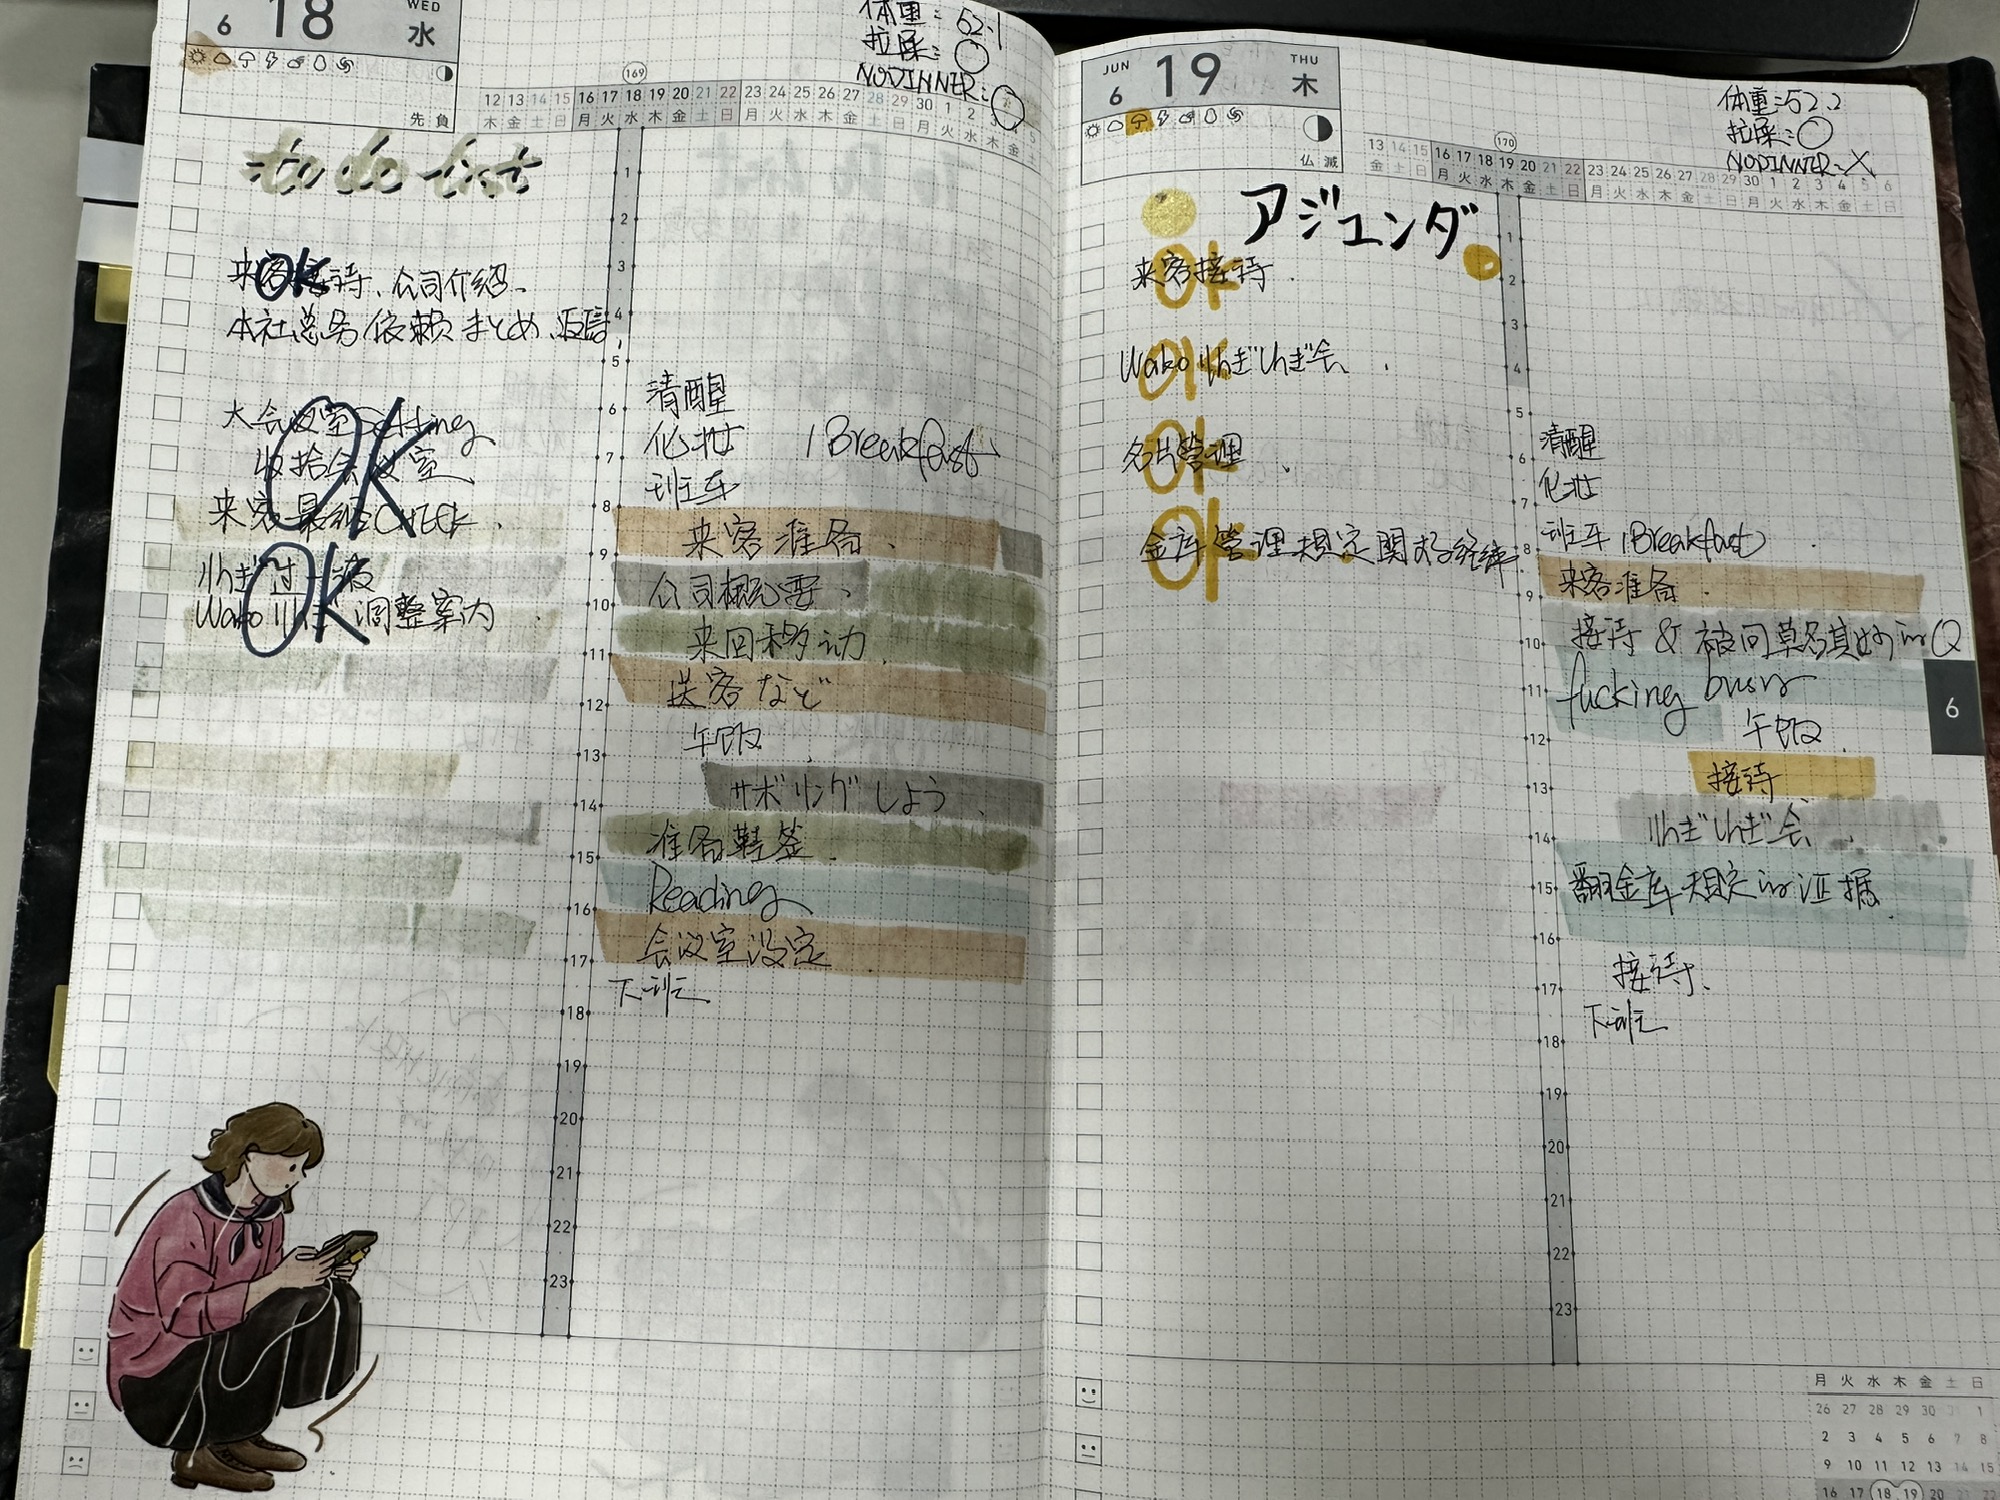 6 18 WED 水
先負
体重：52.1
拉屎：○
NODINNER：○
169
12 13 14 15 16 17 18 19 20 21 22 23 24 25 26 27 28 29 30 1 2
木 金 土 日 月 火 水 木 金 土 日 月 火 水 木 金 土 日 月 火 水 木 金 土
to do list
来客接待、公司介绍、
OK
本社总务依頼まとめ、返信
大会议室Setting
收拾会议室
来客最终CHECK
OK
りんぎ过一族
Wako りんぎ 調整案内
OK
1
2
3
4
5
6
7
8
9
10
11
12
13
14
15
16
17
18
19
20
21
22
23
清醒
化妆 (Breakfast)
班车
来客准备、
公司概要、
来回移动
送客など
午饭
サボリングしよう、
准备鞋签
Reading
会议室设定
下班
JUN 6 19 THU 木
仏滅
体重：52.2
拉屎：○
NODINNER：X
170
13 14 15 16 17 18 19 20 21 22 23 24 25 26 27 28 29 30 1 2 3 4 5 6
金 土 日 月 火 水 木 金 土 日 月 火 水 木 金 土 日 月 火 水 木 金 土 日
アジェンダ
来客接待.
OK
Wako りんぎりんぎ会、
OK
名片管理、
OK
金库管理規定関する経緯
OK
1
2
3
4
5
6
7
8
9
10
11
12
13
14
15
16
17
18
19
20
21
22
23
清醒
化妆
班车 (Breakfast)
来客准备
接待 & 被问莫名其妙的Q
fucking busy
午饭
接待
りんぎりんぎ会
翻金库规定的证据
接待、
下班
6
月 火 水 木 金 土 日
26 27 28 29 30 31 1
2 3 4 5 6 7 8
9 10 11 12 13 14 15
16 17 18 19 20 21 22